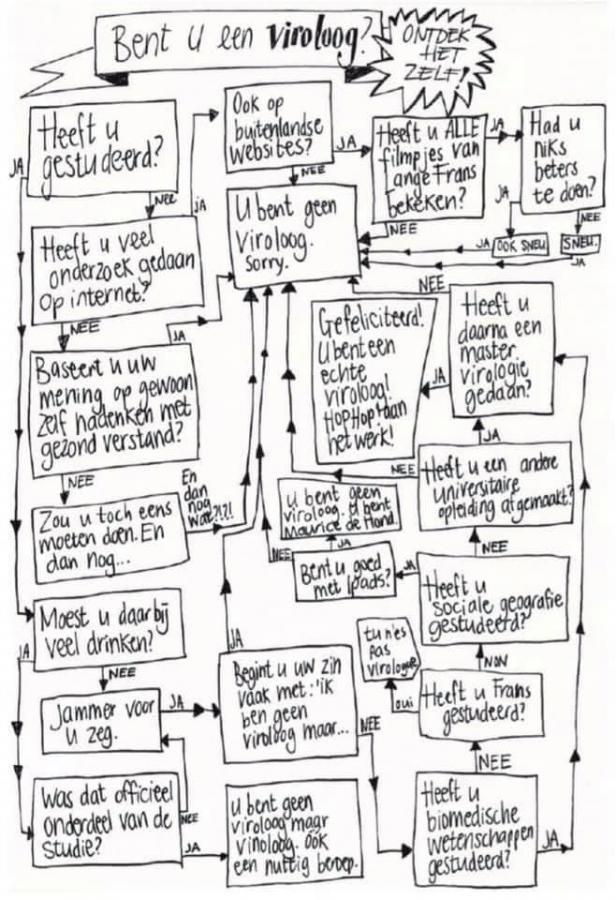 Bent u een viroloog?
ONTDEK
HET
ZELF!
Heeft u
gestudeerd?
JA
NEE
Heeft u veel
onderzoek gedaan
op internet?
ja
NEE
Ook op
buitenlandse
websites?
JA
NEE
Heeft u ALLE
filmpjes van
ange Frans
bekeken?
JA
NEE
Had u
niks
beters
te doen?
JA
NEE
OOK SNEU.
JA
SNEU.
JA
U bent geen
viroloog.
sorry.
Baseert u uw
mening op gewoon
zelf nadenken met
gezond verstand?
JA
NEE
Zou u toch eens
moeten doen. En
dan nog...
En
dan
nog
wat?!?!
Moest u daarbij
veel drinken?
JA
NEE
Jammer voor
u zeg.
JA
Was dat officieel
onderdeel van de
studie?
NEE
JA
u bent geen
viroloog maar
vinoloog. OOK
een nuttig beroep.
Begint u uw zin
vaak met: 'ik
ben geen
viroloog maar...
JA
NEE
Heeft u
biomedische
wetenschappen
gestudeerd?
JA
NEE
Heeft u Frans
gestudeerd?
oui
NON
tu n'es
pas
virologue
Heeft u
sociale geografie
gestudeerd?
JA
NEE
Bent u goed
met Ipads?
JA
NEE
u bent geen
viroloog. u bent
Maurice de Hond.
Heeft u een andere
universitaire
opleiding afgemaakt?
NEE
JA
Heeft u
daarna een
master
virologie
gedaan?
NEE
JA
Gefeliciteerd!
U bent een
echte
viroloog!
Hop Hop aan
het werk!